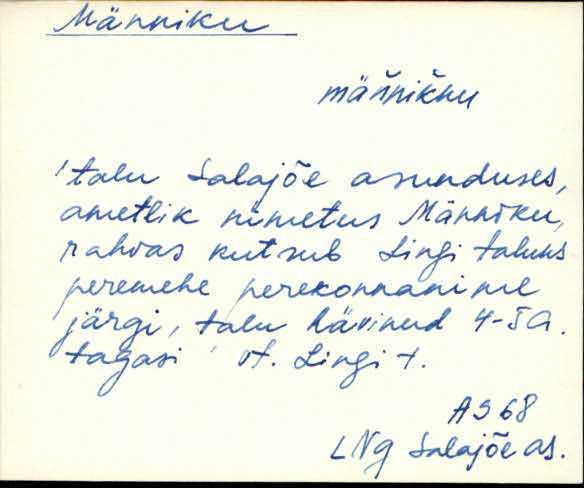 Männiku
mäňnikku
'talu Salajõe asunduses,
ametlik nimetus Männiku,
rahvas kutsub Lingi taluks
peremehe perekonnanime
järgi, talu hävinud 4-5 a.
tagasi' vt. Lingi t.
AS 68
LNg Salajõe as.